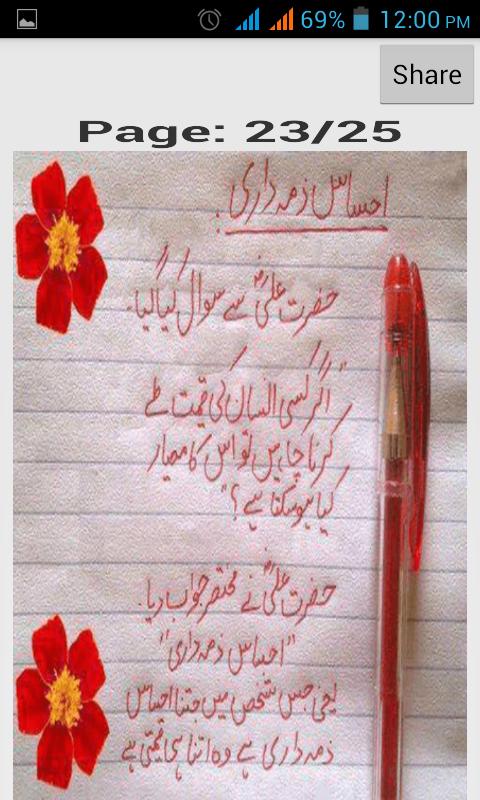 69% 12:00 PM
Share
Page: 23/25
احساس ذمہ داری:
حضرت علیؓ سے سوال کیا گیا۔
"اگر کسی انسان کی قیمت طے
کرنا چاہیں تو اس کا معیار
کیا ہو سکتا ہے؟"
حضرت علیؓ نے مختصر جواب دیا۔
"احساس ذمہ داری"
یعنی جس شخص میں جتنا احساس
ذمہ داری ہے وہ اتنا ہی قیمتی ہے